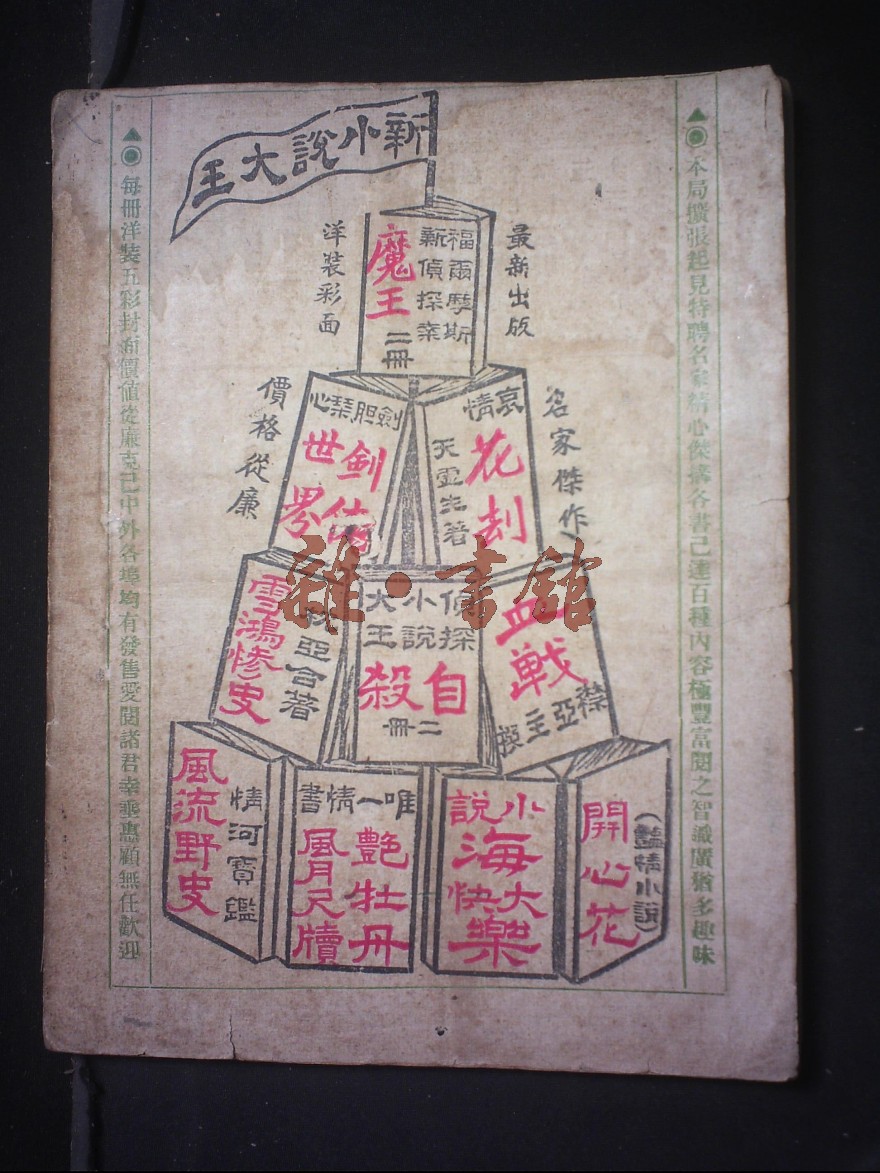 新小說大王
最新出版
洋裝彩面
福爾摩斯
新偵探案
魔王
二冊
名家傑作
價格從廉
哀情
花刦
天虛生著
劍胆琴心
劍俠
世界
血戰
禁亞主撰
偵探
小說
大王
自殺
二冊
雪鴻慘史
亞合著
開心花
(豔情小說)
小說
海大
快樂
唯一情書
艷牡丹
風月尺牘
風流野史
情河寶鑑
▲◉本局擴張起見特聘名家精心傑搆各書已達百種內容極豐富閱之智識廣猶多趣味
▲◉每冊洋裝五彩封面價值從廉克己中外各埠均有發售愛閱諸君幸垂惠顧無任歡迎
雜·書館